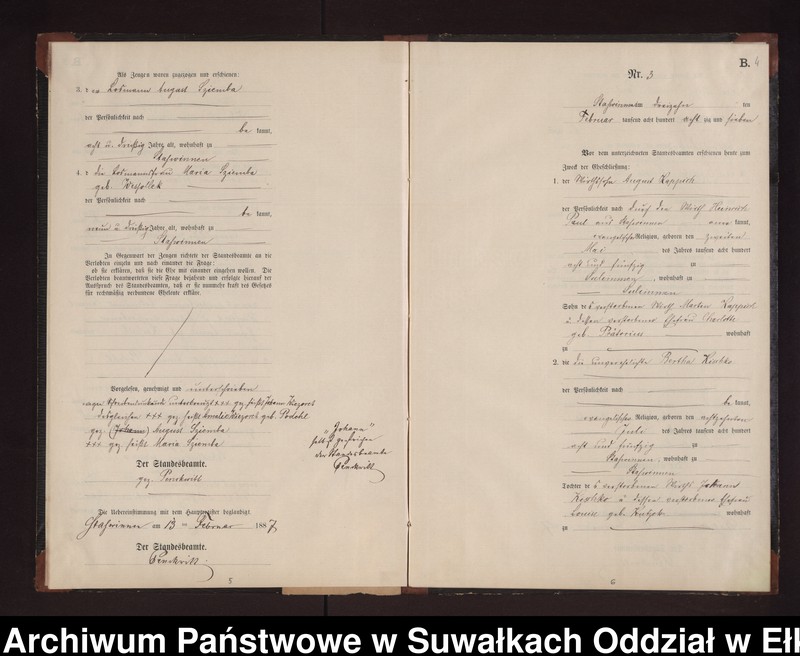 Als Zeugen waren zugezogen und erschienen:
3. der Losmann August Sziemba
der Persönlichkeit nach
be kannt,
acht u. dreißig Jahre alt, wohnhaft zu
Staswinnen
4. die Losmannsfrau Maria Sziemba
geb.
der Persönlichkeit nach
be kannt,
neun u. dreißig Jahre alt, wohnhaft zu
Staswinnen
In Gegenwart der Zeugen richtete der Standesbeamte an die
Verlobten einzeln und nach einander die Frage:
ob sie erklären, daß sie die Ehe mit einander eingehen wollen. Die
Verlobten beantworteten diese Frage bejahend und erfolgte hierauf der
Ausspruch des Standesbeamten, daß er sie nunmehr kraft des Gesetzes
für rechtmäßig verbundene Eheleute erkläre.
Vorgelesen, genehmigt und unterschrieben
wegen unterkreuzt +++ gez. Johann
desgleichen +++ gez. Amalie geb.
gez. (Johann) August Sziemba
+++ gez. Maria Sziemba
Der Standesbeamte.
gez.
Die Uebereinstimmung mit dem Hauptregister beglaubigt.
Staswinnen am 13 ten Februar 1887
Der Standesbeamte.
5
"Johann"
der Standesbeamte
B. 4
Nr. 3
Staswinnen am dreizehn ten
Februar tausend acht hundert acht zig und sieben
Vor dem unterzeichneten Standesbeamten erschienen heute zum
Zweck der Eheschließung:
1. der Wirthssohn August
der Persönlichkeit nach durch den Wirth Heinrich
Paul aus Staswinnen kannt,
evangelischer Religion, geboren den zweiten
Mai des Jahres tausend acht hundert
acht und fünfzig zu
, wohnhaft zu
Sohn des verstorbenen Wirth Martin
u. dessen verstorbener Ehefrau Charlotte
geb. wohnhaft
zu
2. die unverehelichte Bertha
der Persönlichkeit nach
be kannt,
evangelischer Religion, geboren den achtzehnten
Juli des Jahres tausend acht hundert
acht und fünfzig zu
Staswinnen, wohnhaft zu
Staswinnen
Tochter des verstorbenen Wirths Johann
u. dessen verstorbener Ehefrau
Louise geb. wohnhaft
zu
6
Archiwum Państwowe w Suwałkach Oddział w Ełk